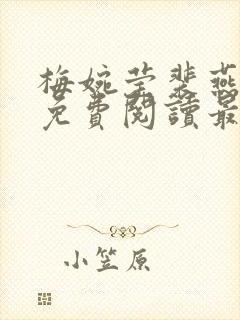 梅婉莹裴燕
免費閱讀最
小笠原